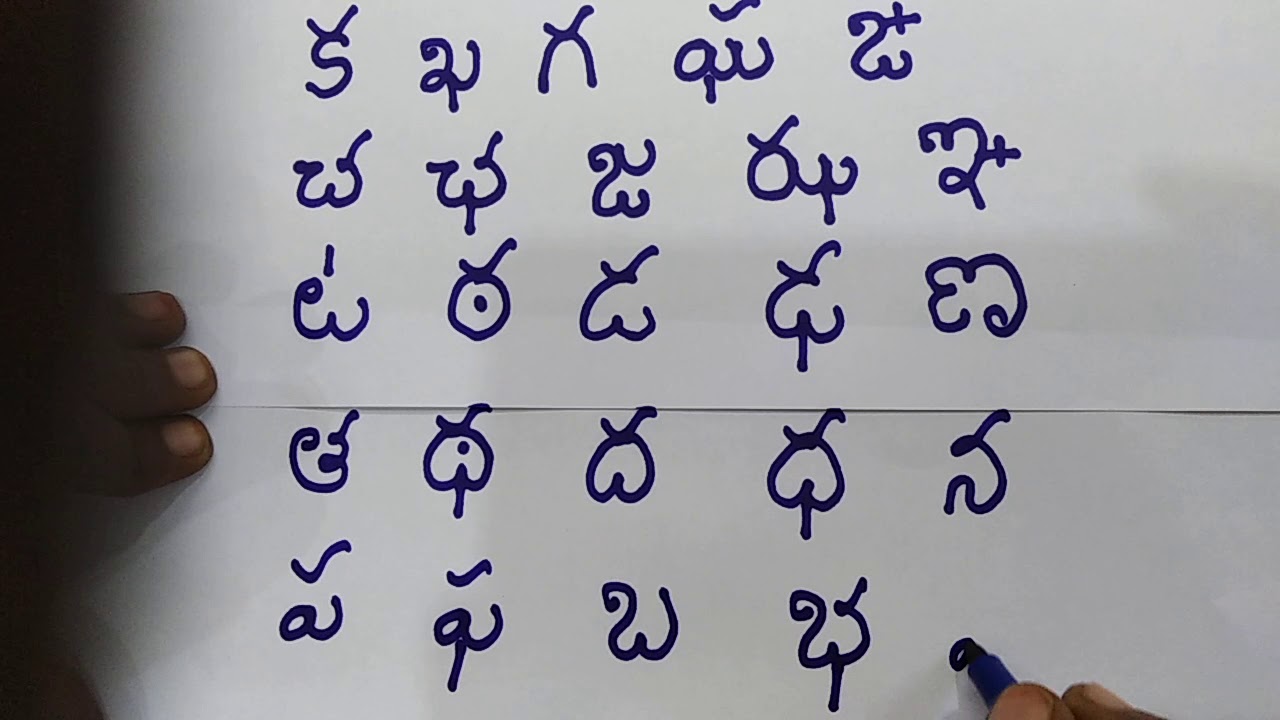 క ఖ గ ఘ ఙ
చ ఛ జ ఝ ఞ
ట ఠ డ ఢ ణ
త థ ద ధ న
ప ఫ బ భ